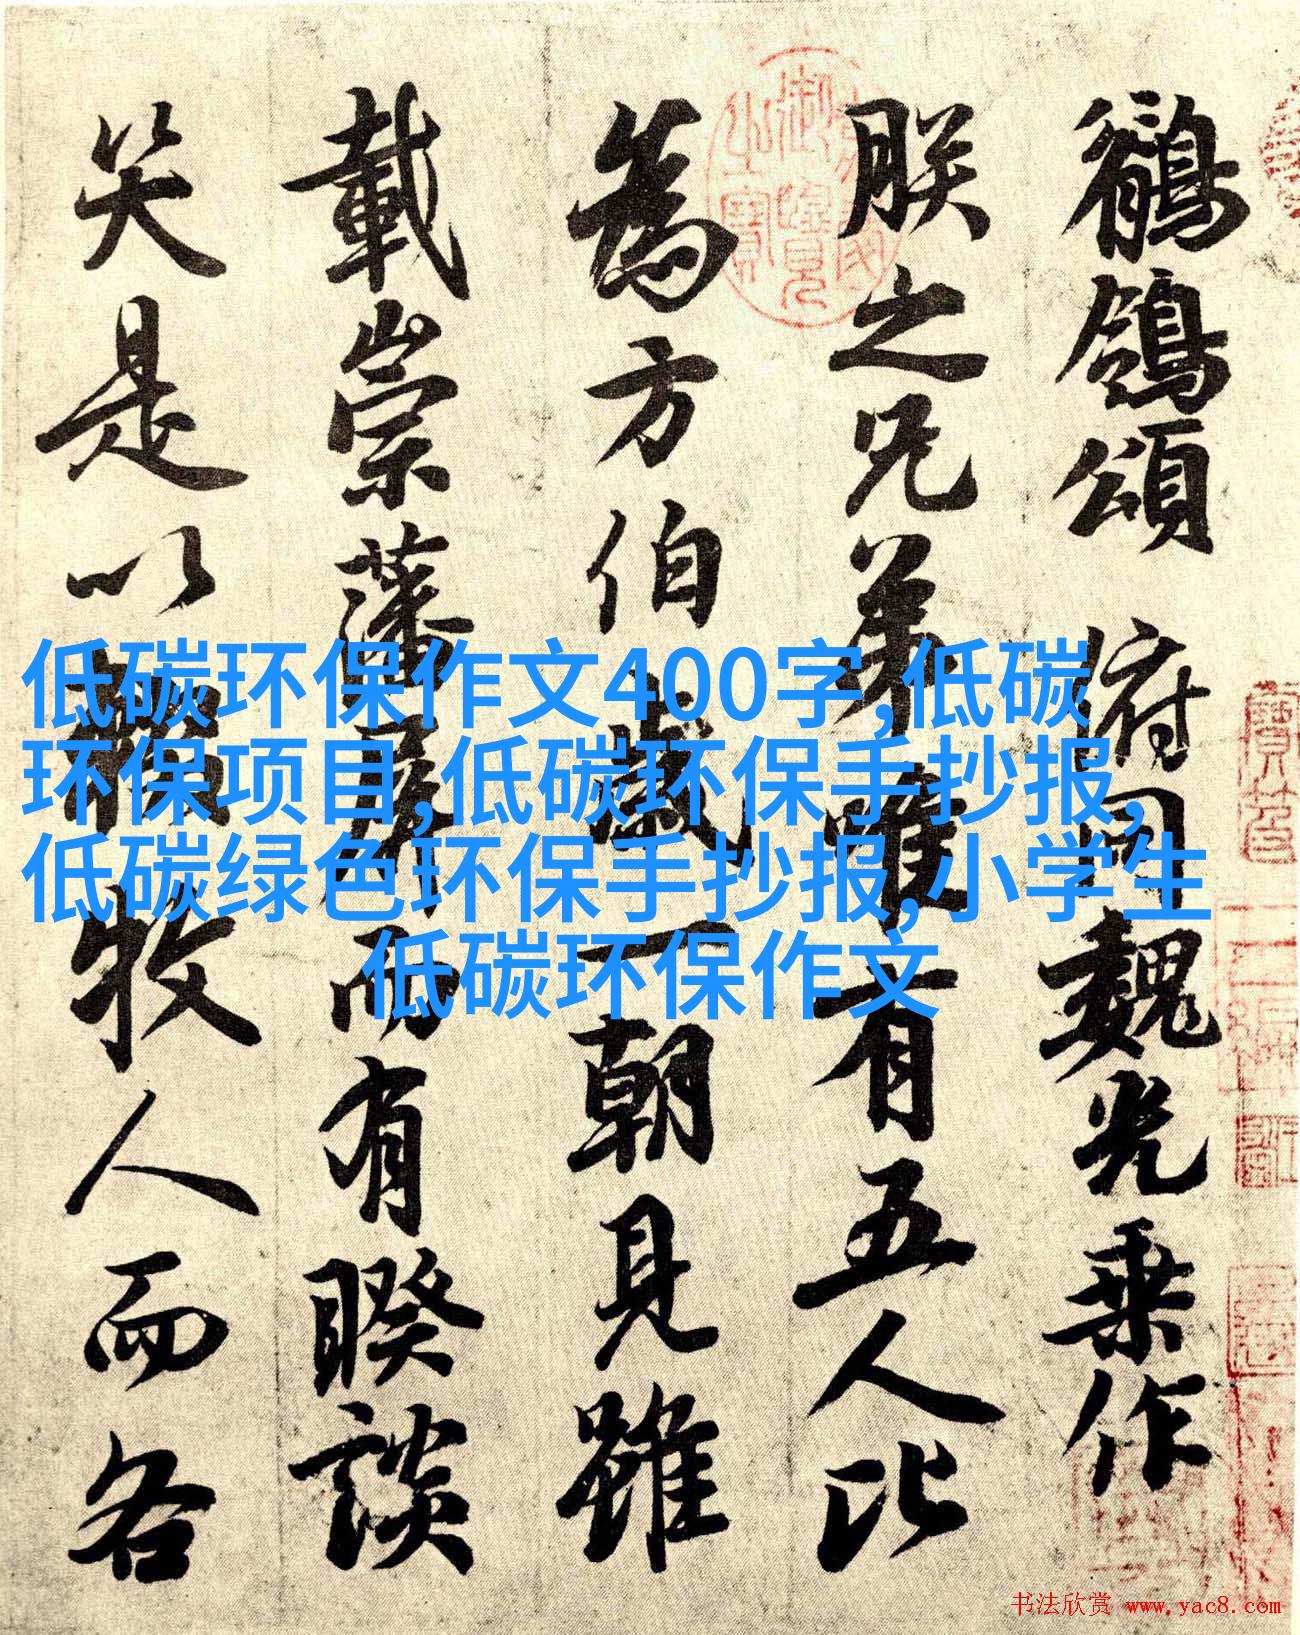 鶺鴒頌 俯同魏光乘作
朕之兄弟唯有五人比
為方伯歲一朝見雖
載崇藩屏而有睽談
笑是以輟牧人而各
低碳环保作文400字,低碳
环保项目,低碳环保手抄报,
低碳绿色环保手抄报,小学生
低碳环保作文
书法欣赏 www.yac8.com